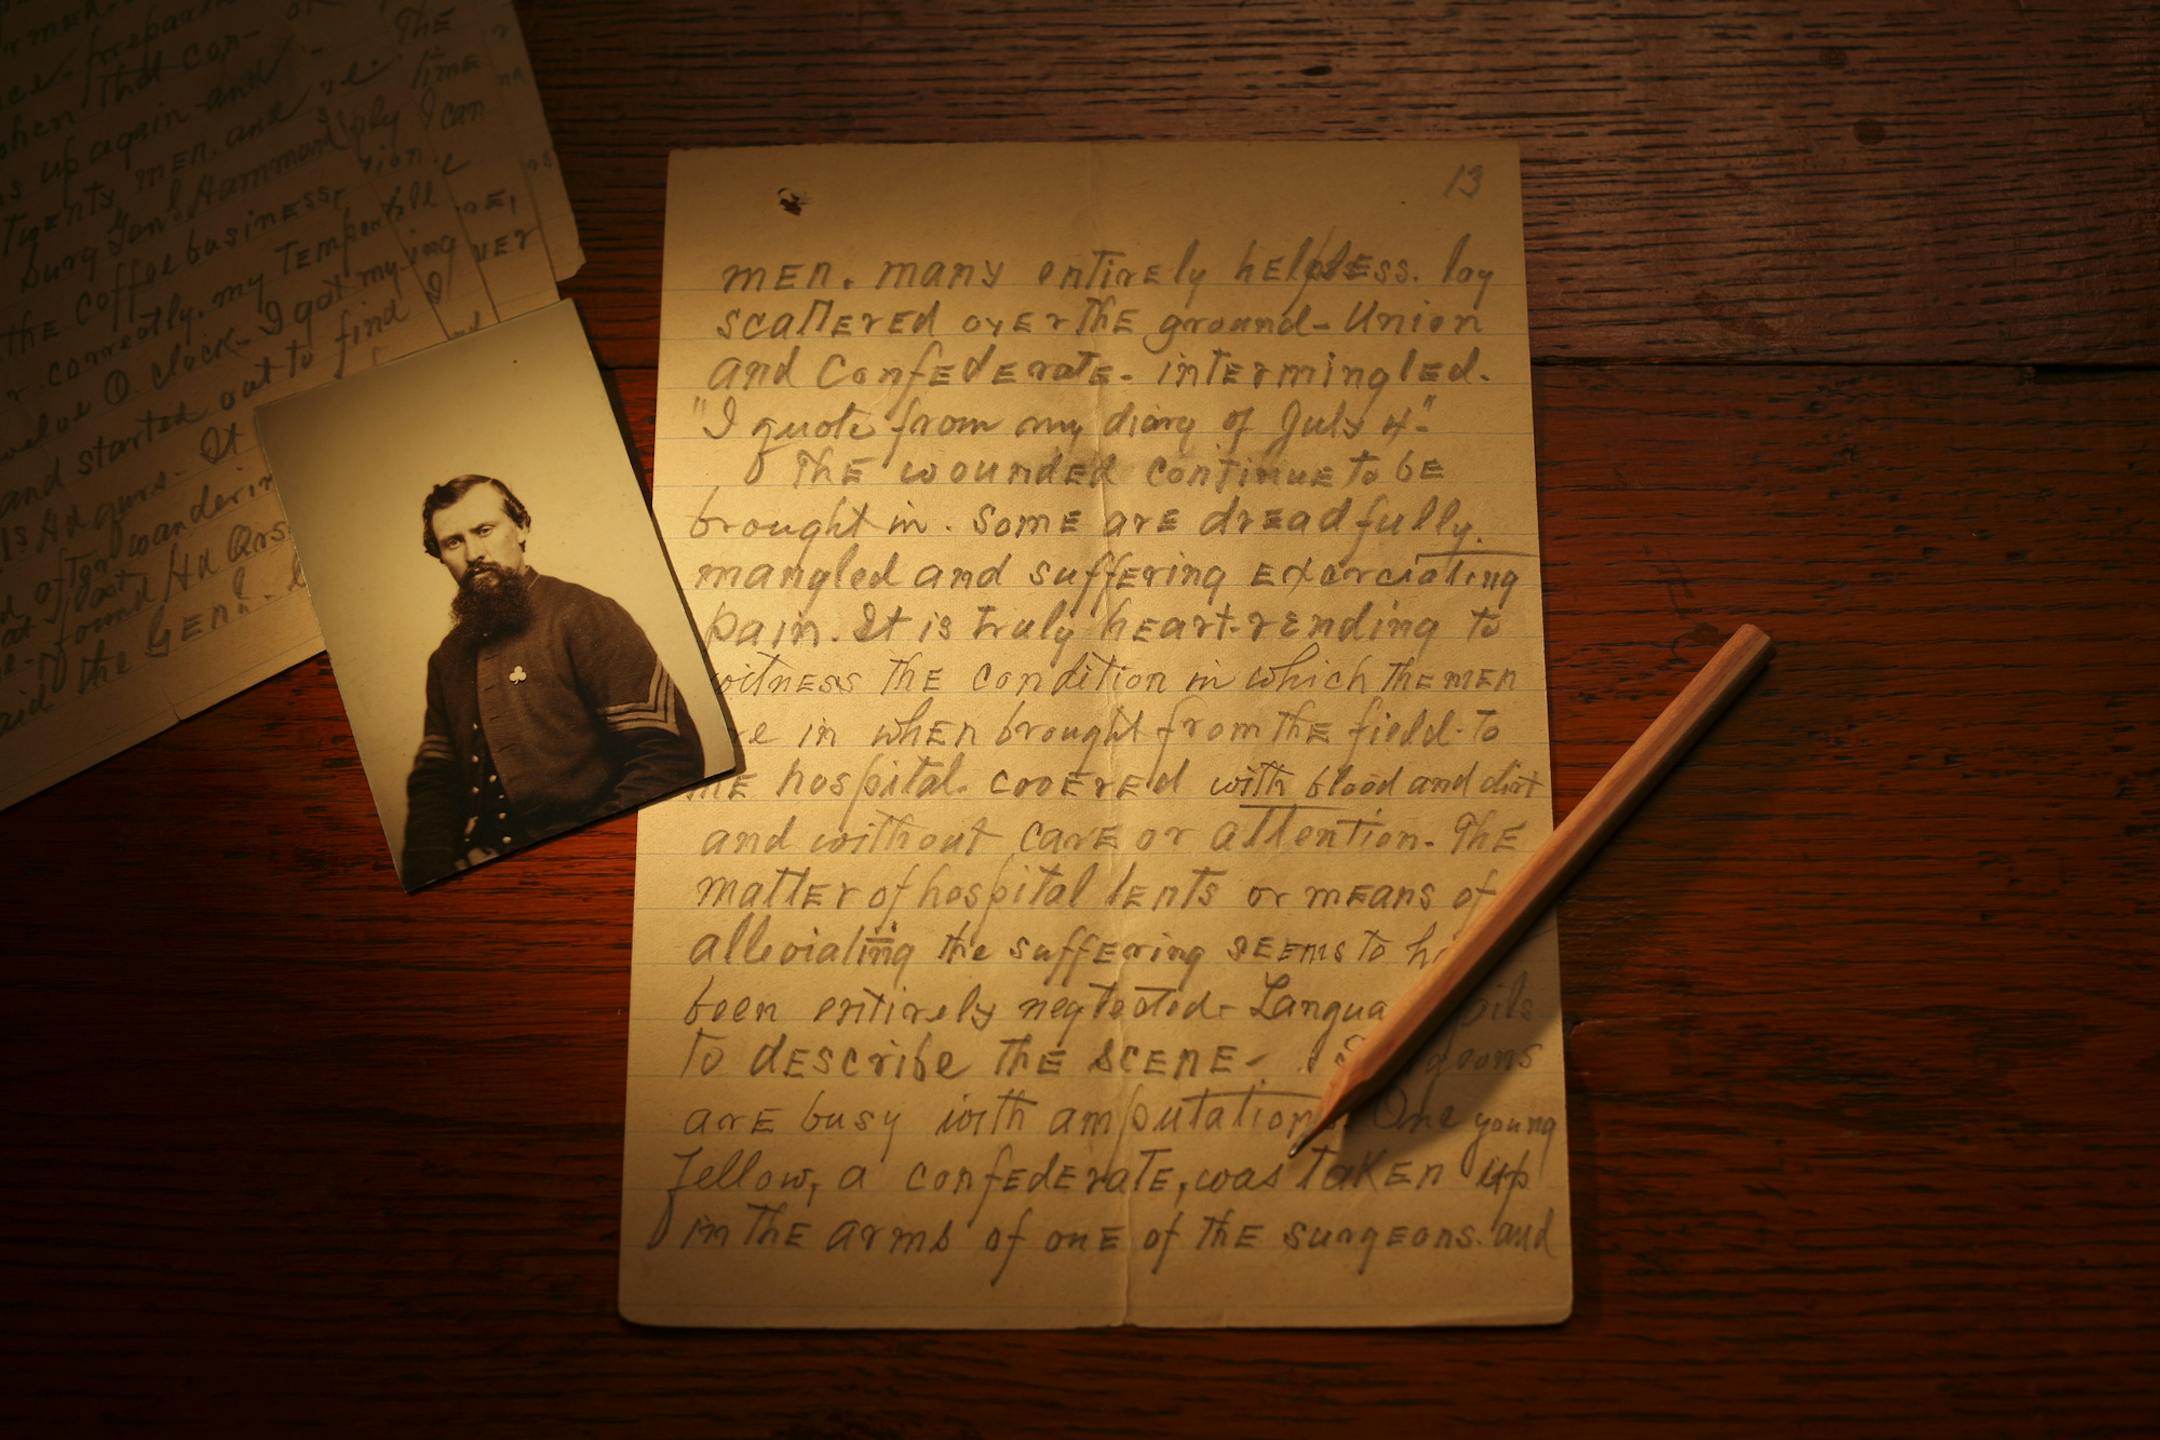 when That con-
s up again and
Twenty men. and
burg Gen'l Hammond
ply I can
the coffee business,
r correctly. my Temper
welve O. clock - I got my
and started out to find
Is Hd qurs - It
d after wanderin
at last Hd Qrs
e - found
aid the Genl.
The
Time
till
VER
13
men. many entirely helpless. lay
scattered over the ground - Union
and Confederate - intermingled.
"I quote from my diary of July 4"-
The wounded continue to be
brought in. Some are dreadfully.
mangled and suffering excrciating
pain. It is truly heart-rending to
witness the condition in which the men
e in when brought from the field - to
he hospital. covered with blood and dirt
and without care or attention. The
matter of hospital tents or means of
alleviating the suffering seems to ha
been entirely neglected - Langua ails
to describe the scene - S geons
are busy with amputation One young
fellow, a confederate, was taken up
in the arms of one of the surgeons. and